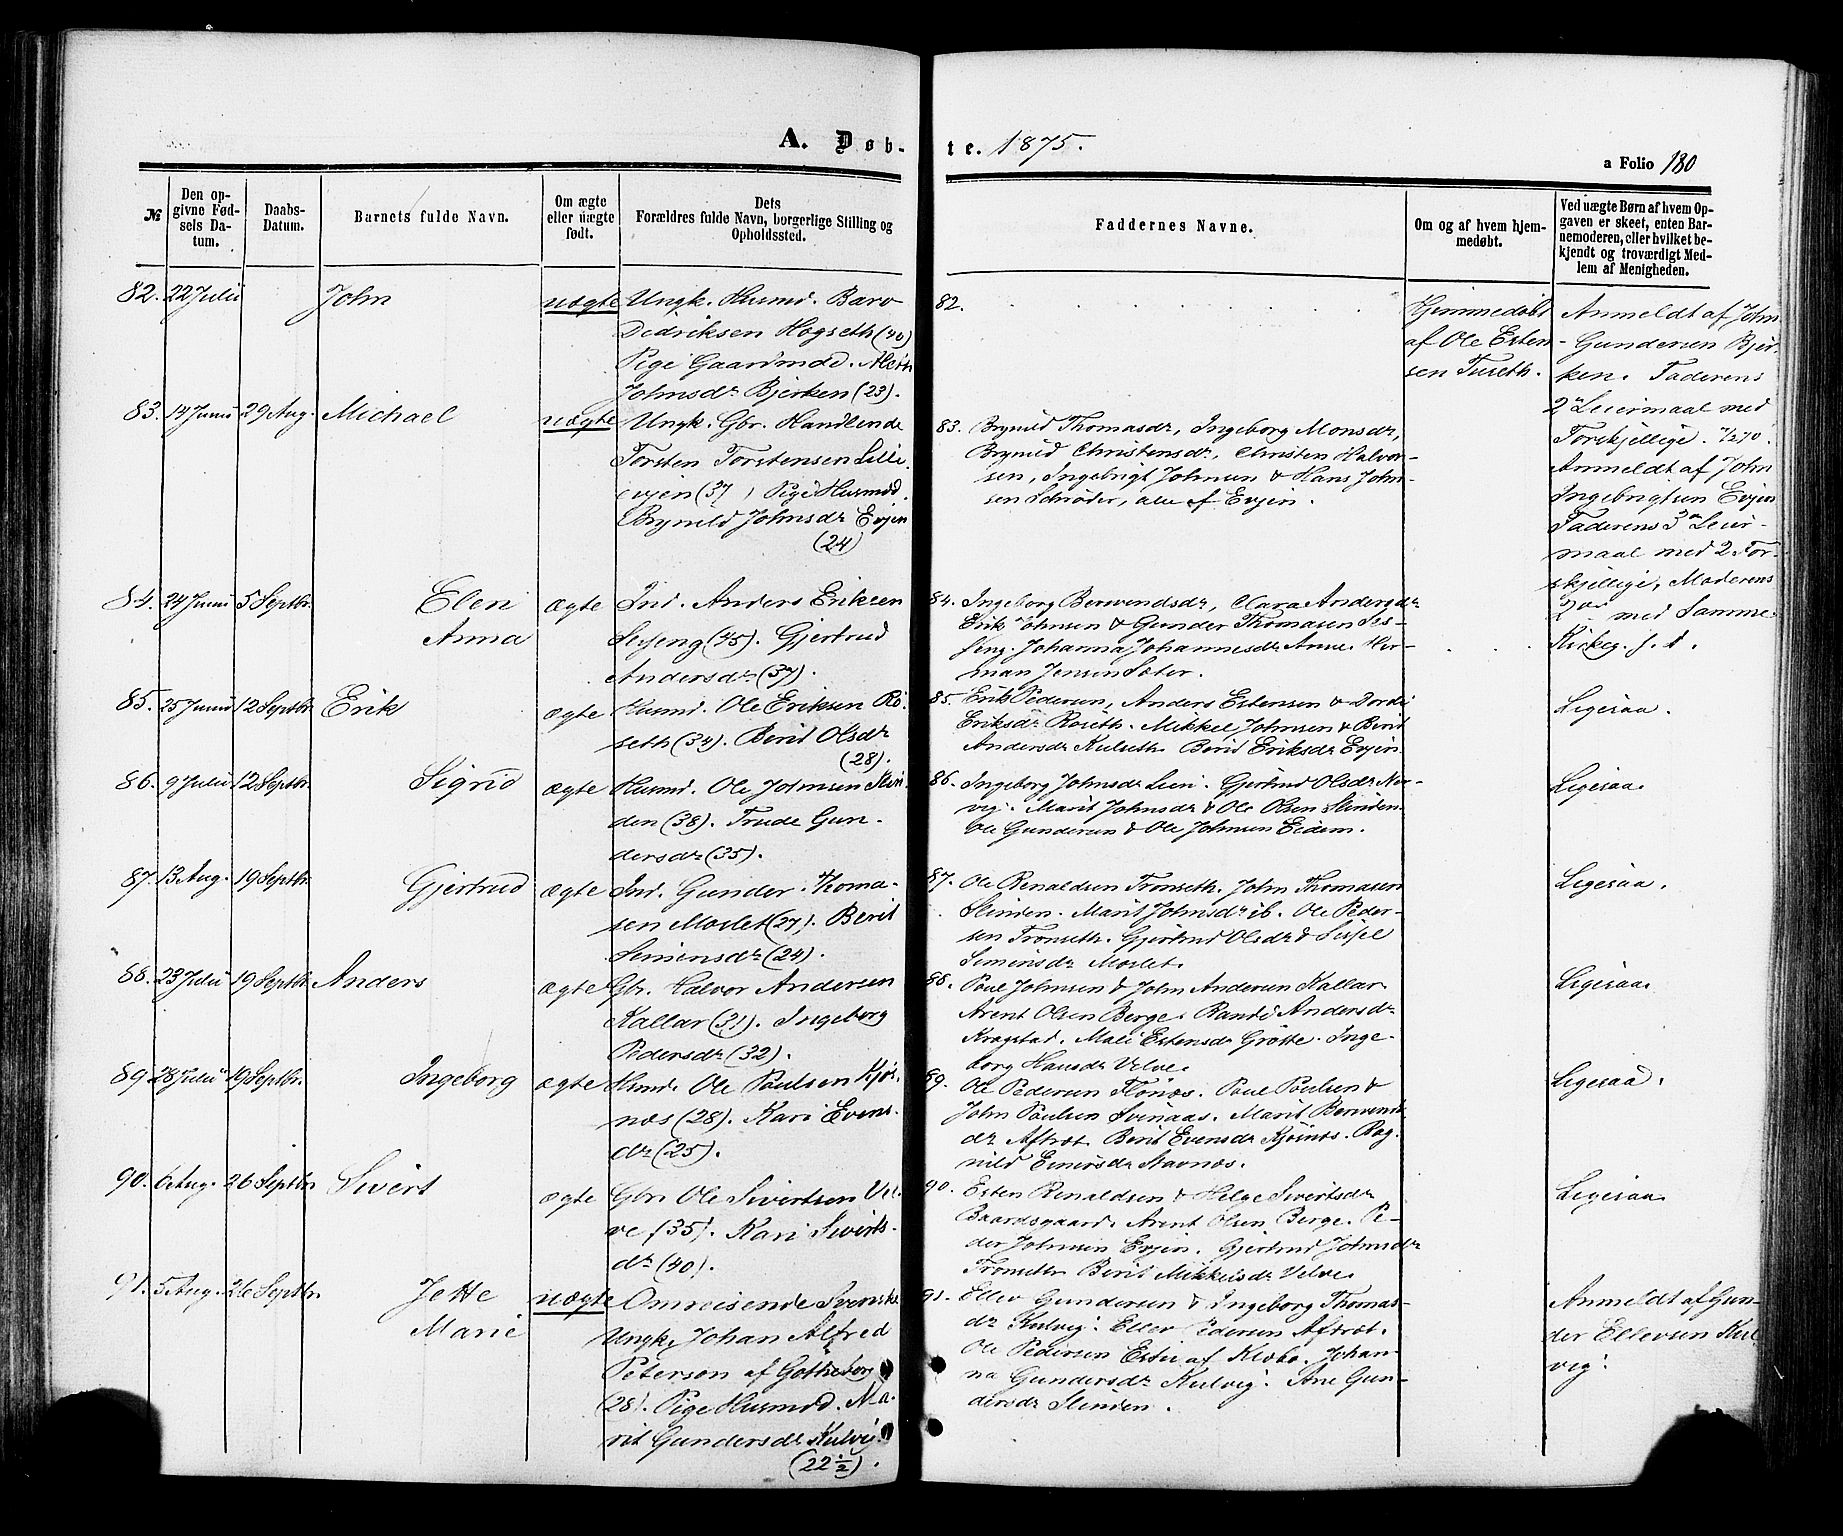 A. Døb-
te. 1875.
a Folio 180
№
Den op-
givne Fød-
sels Da-
tum.
Daabs-
Datum.
Barnets fulde Navn.
Om ægte
eller uægte
født.
Dets
Forældres fulde Navn, borgerlige Stilling og
Opholdssted.
Faddernes Navne.
Om og af hvem hjem-
medøbt.
Ved uægte Børn af hvem Op-
gaven er skeet, enten Bar-
nemoderen, eller hvilket be-
kjendt og troværdigt Med-
lem af Menigheden.
82. 22 Julii John uægte Ungk. Husmd. Baro
Dedriksen Hogseth (40)
Pige Gaardmdd. Mereth
Johnsdr Bjerken (23).
82.
Hjemmedøbt
af Ole Esten
sen Tuseth.
Anmeldt af John
Gundersen Bjer-
ken. Faderens
2 Leiermaal med
Forskjellige.
83. 14 Junii 29 Aug. Michael uægte Ungk. Gbr. Handlende
Torsten Torstensen Lille
evjen (37) Pige Husmdd.
Brynild Johnsdr Evjen
(24)
83. Brynild Thomasdr, Ingeborg Monsdr,
Brynild Christensdr, Christen Halvor-
sen, Ingebrigt Johnsen & Hans John-
sen Schrøder, alle af Evjen.
Anmeldt af John
Ingebrigtsen Evjen
Faderens 3 Leier-
maal med 2 For-
skjellige, Moderens
2 med Samme.
84. 24 Junii 5 Septbr. Elen
Anna
ægte Ind. Anders Eriksen
Sesseng (45). Gjertrud
Andersdr (37).
84. Ingeborg Berwendsdr, Clara Andersdr
Erik Johnsen & Gunder Thomasen Ses-
seng. Johanna Johannesdr Anne. Her-
man Jensen Sæter.
Kirkeg. f. 1.
85. 25 Junii 12 Septbr. Erik ægte Husmd. Ole Eriksen Ro-
seth (34). Berit Olsdr
(28).
85. Erik Pedersen, Anders Estensen & Dordi
Eriksdr Roseth. Mikkel Johnsen & Berit
Andersdr Kulseth. Berit Eriksdr Evjen
Ligesaa.
86. 9 Julii 12 Septbr. Sigrid ægte Husmd. Ole Johnsen Slin
den (38). Trude Gun-
dersdr (35).
86. Ingeborg Johnsdr Lien. Gjertrud Olsdr Ner-
vig. Marit Johnsdr & Ole Olsen Slinden.
Ole Gundersen & Ole Johnsen Eidem.
Ligesaa
87. 13 Aug. 19 Septbr. Gjertrud ægte Ind. Gunder Thoma-
sen Moslet (27). Berit
Simensdr (24).
87. Ole Renaldsen Tronseth. John Thomasen
Slinden. Marit Johnsdr ib. Ole Peder-
sen Tronseth. Gjertrud Olsdr & Sissel
Simensdr Moslet.
Ligesaa.
88. 23 Julii 19 Septbr. Anders ægte Gbr. Halvor Andersen
Kallar (31). Ingeborg
Pedersdr (32).
88. Poul Johnsen & John Andersen Kallar
Arent Olsen Berge. Randi Andersdr
Kragstad. Mali Estensdr Grøtte. Inge-
borg Hansdr Velve.
Ligesaa
89. 28 Julii 19 Septbr. Ingeborg ægte Husmd. Ole Poulsen Kjøs-
næs (28). Kari Evens-
dr (25).
89. Ole Pedersen Flønæs. Poul Poulsen &
John Poulsen Svinaas. Marit Berwends
dr Aftret Berit Evensdr Kjøsnæs. Rag-
nild Einersdr Stavnæs.
Ligesaa.
90. 6 Aug. 26 Septbr. Sivert ægte Gbr. Ole Sivertsen Vel-
ve (35). Kari Siverts-
dr (40).
90. Esten Renaldsen & Helge Sivertsdr
Baardsgaard. Arent Olsen Berge. Pe-
der Johnsen Evjen. Gjertrud Johnsdr
Tronseth Berit Mikkelsdr Velve.
Ligesaa
91. 5 Aug. 26 Septbr. Jette
Marie
uægte Omreisende Svenske
Ungk. Johan Alfred
Peterson af Gotheborg
(28). Pige Husmdd. Ma-
rit Gundersdr Kulvig
(22 ½).
91. Ellev Gundersen & Ingeborg Thomas-
dr Kulvig. Ellev Pedersen Aftret.
Ole Pedersen Estu af Klæbo. Johan-
na Gundersdr Kulvig. Ane Gun-
dersdr Slinden.
Anmeldt af Gun-
der Ellevsen Kul
vig.